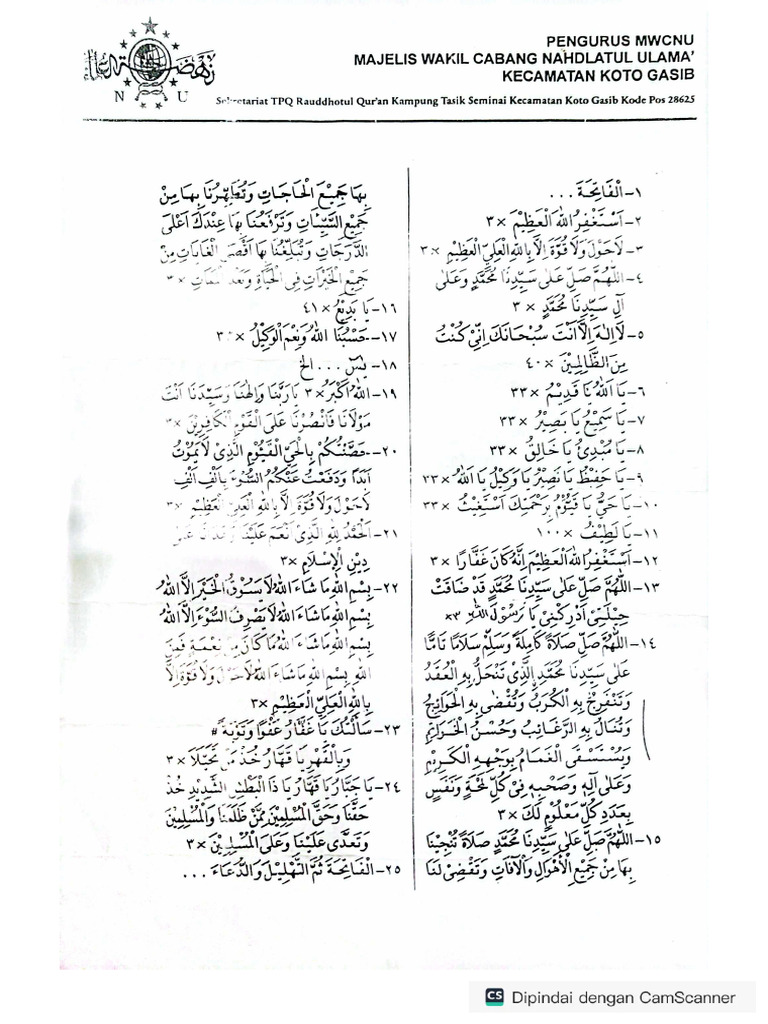 PENGURUS MWCNU
MAJELIS WAKIL CABANG NAHDLATUL ULAMA'
KECAMATAN KOTO GASIB
Sekretariat TPQ Rauddhotul Qur'an Kampung Tasik Seminai Kecamatan Koto Gasib Kode Pos 28625
N U
١- اَلْفَاتِحَةَ ...
٢- اَسْتَغْفِرُ اللهَ الْعَظِيْمَ ×٣
٣- لَاحَوْلَ وَلَا قُوَّةَ اِلَّا بِاللهِ الْعَلِيِّ الْعَظِيْمِ ×٣
٤- اَللّٰهُمَّ صَلِّ عَلَى سَيِّدِنَا مُحَمَّدٍ وَعَلَى
آلِ سَيِّدِنَا مُحَمَّدٍ ×٣
٥- لَا اِلٰهَ اِلَّا اَنْتَ سُبْحَانَكَ اِنِّيْ كُنْتُ
مِنَ الظَّالِمِيْنَ ×٤٠
٦- يَا اَللهُ يَا قَدِيْمُ ×٣٣
٧- يَا سَمِيْعُ يَا بَصِيْرُ ×٣٣
٨- يَا مُبْدِئُ يَا خَالِقُ ×٣٣
٩- يَا حَفِيْظُ يَا نَصِيْرُ يَا وَكِيْلُ يَا اَللهُ ×٣٣
١٠- يَا حَيُّ يَا قَيُّوْمُ بِرَحْمَتِكَ اَسْتَغِيْثُ ×٣٣
١١- يَا لَطِيْفُ ×١٠٠
١٢- اَسْتَغْفِرُ اللهَ الْعَظِيْمَ اِنَّهُ كَانَ غَفَّارًا ×٣
١٣- اَللّٰهُمَّ صَلِّ عَلَى سَيِّدِنَا مُحَمَّدٍ قَدْ ضَاقَتْ
حِيْلَتِيْ اَدْرِكْنِيْ يَا رَسُوْلَ اللهِ ×٣
١٤- اَللّٰهُمَّ صَلِّ صَلَاةً كَامِلَةً وَسَلِّمْ سَلَامًا تَامًّا
عَلَى سَيِّدِنَا مُحَمَّدٍ الَّذِيْ تَنْحَلُّ بِهِ الْعُقَدُ
وَتَنْفَرِجُ بِهِ الْكُرَبُ وَتُقْضَى بِهِ الْحَوَائِجُ
وَتُنَالُ بِهِ الرَّغَائِبُ وَحُسْنُ الْخَوَاتِمِ
وَيُسْتَسْقَى الْغَمَامُ بِوَجْهِهِ الْكَرِيْمِ
وَعَلَى آلِهِ وَصَحْبِهِ فِيْ كُلِّ لَمْحَةٍ وَنَفَسٍ
بِعَدَدِ كُلِّ مَعْلُوْمٍ لَكَ ×٣
١٥- اَللّٰهُمَّ صَلِّ عَلَى سَيِّدِنَا مُحَمَّدٍ صَلَاةً تُنْجِيْنَا
بِهَا مِنْ جَمِيْعِ الْأَهْوَالِ وَالْآفَاتِ وَتَقْضِيْ لَنَا
بِهَا جَمِيْعَ الْحَاجَاتِ وَتُطَهِّرُنَا بِهَا مِنْ
جَمِيْعِ السَّيِّئَاتِ وَتَرْفَعُنَا بِهَا عِنْدَكَ اَعْلَى
الدَّرَجَاتِ وَتُبَلِّغُنَا بِهَا اَقْصَى الْغَايَاتِ مِنْ
جَمِيْعِ الْخَيْرَاتِ فِى الْحَيَاةِ وَبَعْدَ الْمَمَاتِ ×٣
١٦- يَا بَدِيْعُ ×٤١
١٧- حَسْبُنَا اللهُ وَنِعْمَ الْوَكِيْلُ
١٨- يٰسٓ ... الخ
١٩- اَللهُ اَكْبَرُ ×٣ يَا رَبَّنَا وَاِلٰهَنَا وَسَيِّدَنَا اَنْتَ
مَوْلَانَا فَانْصُرْنَا عَلَى الْقَوْمِ الْكَافِرِيْنَ ×٣
٢٠- حَصَّنْتُكُمْ بِالْحَيِّ الْقَيُّوْمِ الَّذِيْ لَا يَمُوْتُ
اَبَدًا وَدَفَعْتُ عَنْكُمُ السُّوْءَ بِاَلْفِ اَلْفِ
لَاحَوْلَ وَلَا قُوَّةَ اِلَّا بِاللهِ الْعَلِيِّ الْعَظِيْمِ ×٣
٢١- اَلْحَمْدُ لِلهِ الَّذِيْ اَنْعَمَ عَلَيْنَا وَهَدَانَا عَلَى
دِيْنِ الْاِسْلَامِ ×٣
٢٢- بِسْمِ اللهِ مَا شَاءَ اللهُ لَا يَسُوْقُ الْخَيْرَ اِلَّا اللهُ
بِسْمِ اللهِ مَا شَاءَ اللهُ لَا يَصْرِفُ السُّوْءَ اِلَّا اللهُ
بِسْمِ اللهِ مَا شَاءَ اللهُ مَا كَانَ مِنْ نِعْمَةٍ فَمِنَ
اللهِ بِسْمِ اللهِ مَا شَاءَ اللهُ لَا حَوْلَ وَلَا قُوَّةَ اِلَّا
بِاللهِ الْعَلِيِّ الْعَظِيْمِ ×٣
٢٣- سَأَلْتُكَ يَا غَفَّارُ عَفْوًا وَتَوْبَةً #
وَبِالْقَهْرِ يَا قَهَّارُ خُذْ مَنْ تَحَيَّلَا ×٣
٢٤- يَا جَبَّارُ يَا قَهَّارُ يَا ذَا الْبَطْشِ الشَّدِيْدِ خُذْ
حَقَّنَا وَحَقَّ الْمُسْلِمِيْنَ مِمَّنْ ظَلَمَنَا وَالْمُسْلِمِيْنَ
وَتَعَدَّى عَلَيْنَا وَعَلَى الْمُسْلِمِيْنَ ×٣
٢٥- اَلْفَاتِحَةَ ثُمَّ التَّهْلِيْلَ وَالدُّعَاءَ ...
CS Dipindai dengan CamScanner